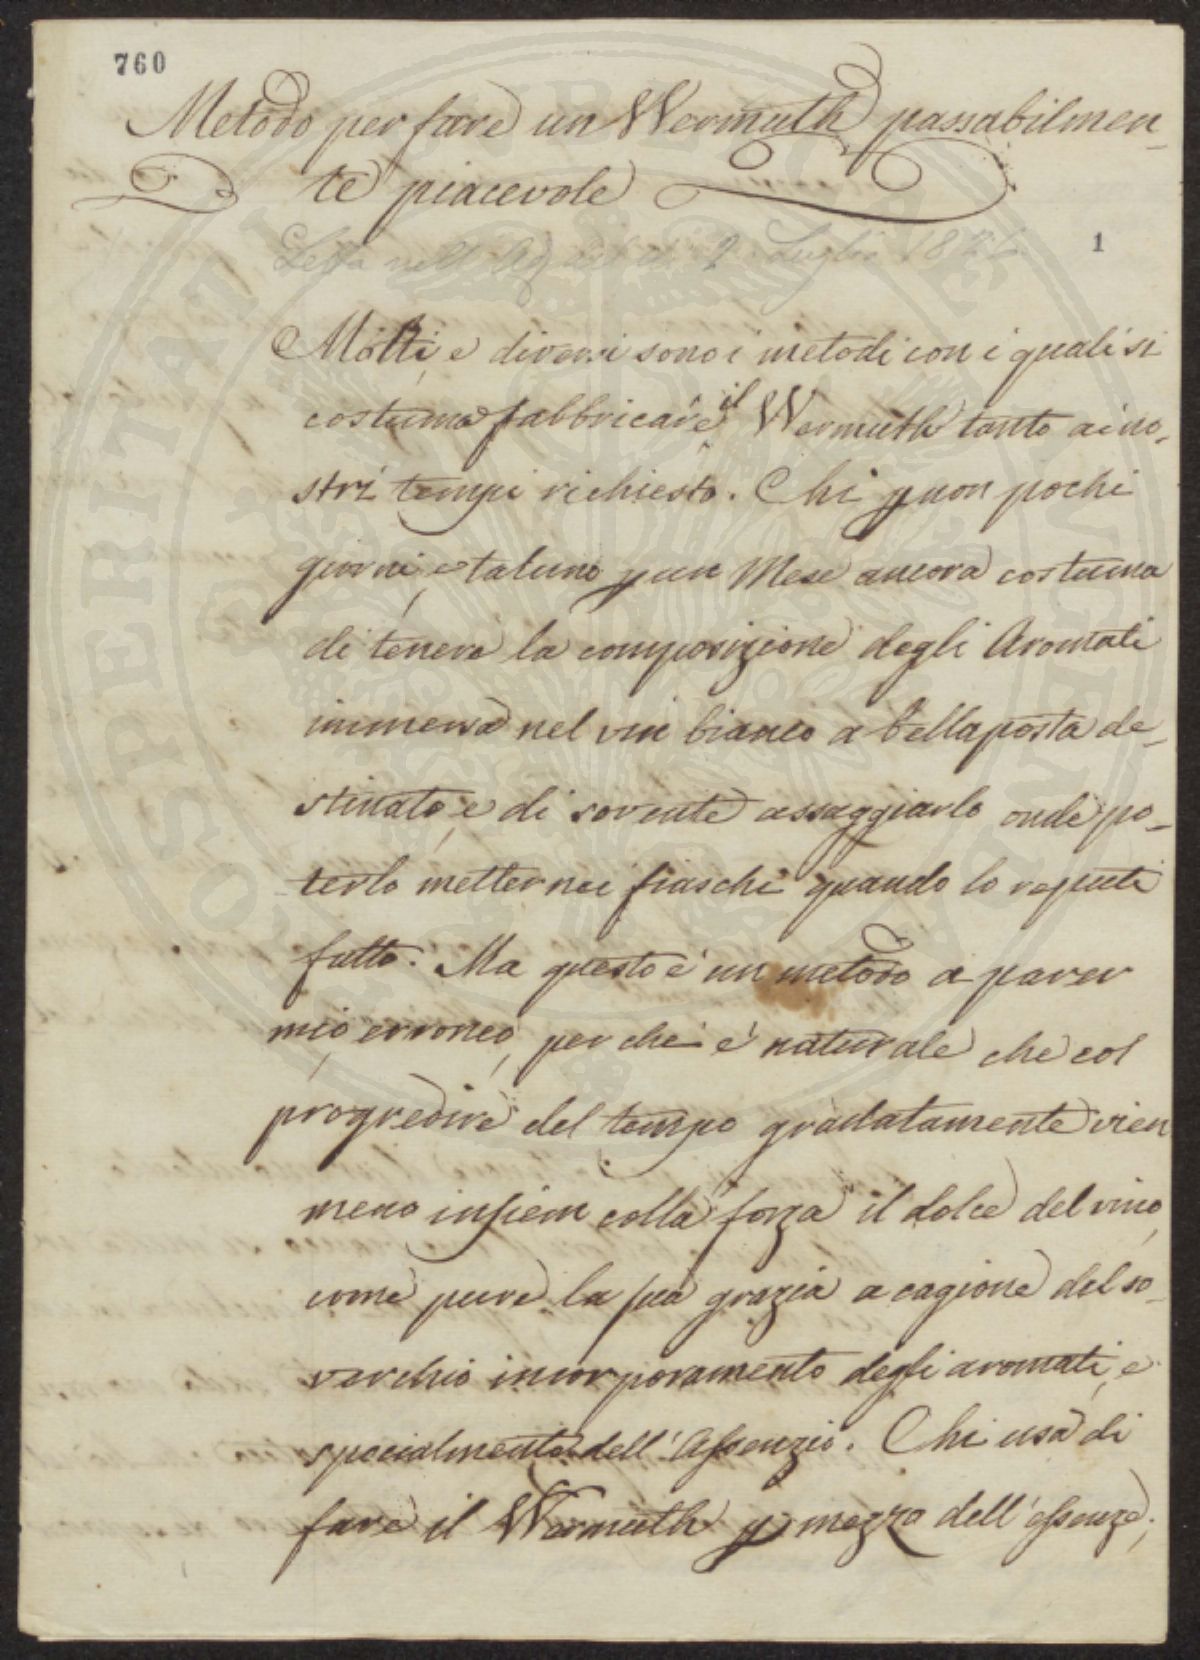 760
Metodo per fare un Wermuth passabilmen-
te piacevole
Letta nell' del di 2 Luglio
1
Molti, e diversi sono i metodi con i quali si
costuma fabbricare il Wermuth tanto ai no-
stri tempi richiesto. Chi p non pochi
giorni, e taluno p un Mese ancora costuma
di tenere la composizione degli Aromati
immersa nel vin bianco a bella posta de-
stinato, e di sovente assaggiarlo onde po-
terlo metter nei fiaschi quando lo reputi
fatto. Ma questo è un metodo a parer
mio, erroneo, perchè è naturale che col
progredire del tempo gradatamente vien
meno insiem colla forza il dolce del vino,
come pure la sua grazia a cagione del so-
verchio incorporamento degli aromati, e
specialmente dell'Assenzio. Chi usa di
fare il Wermuth p mezzo dell'essenze;